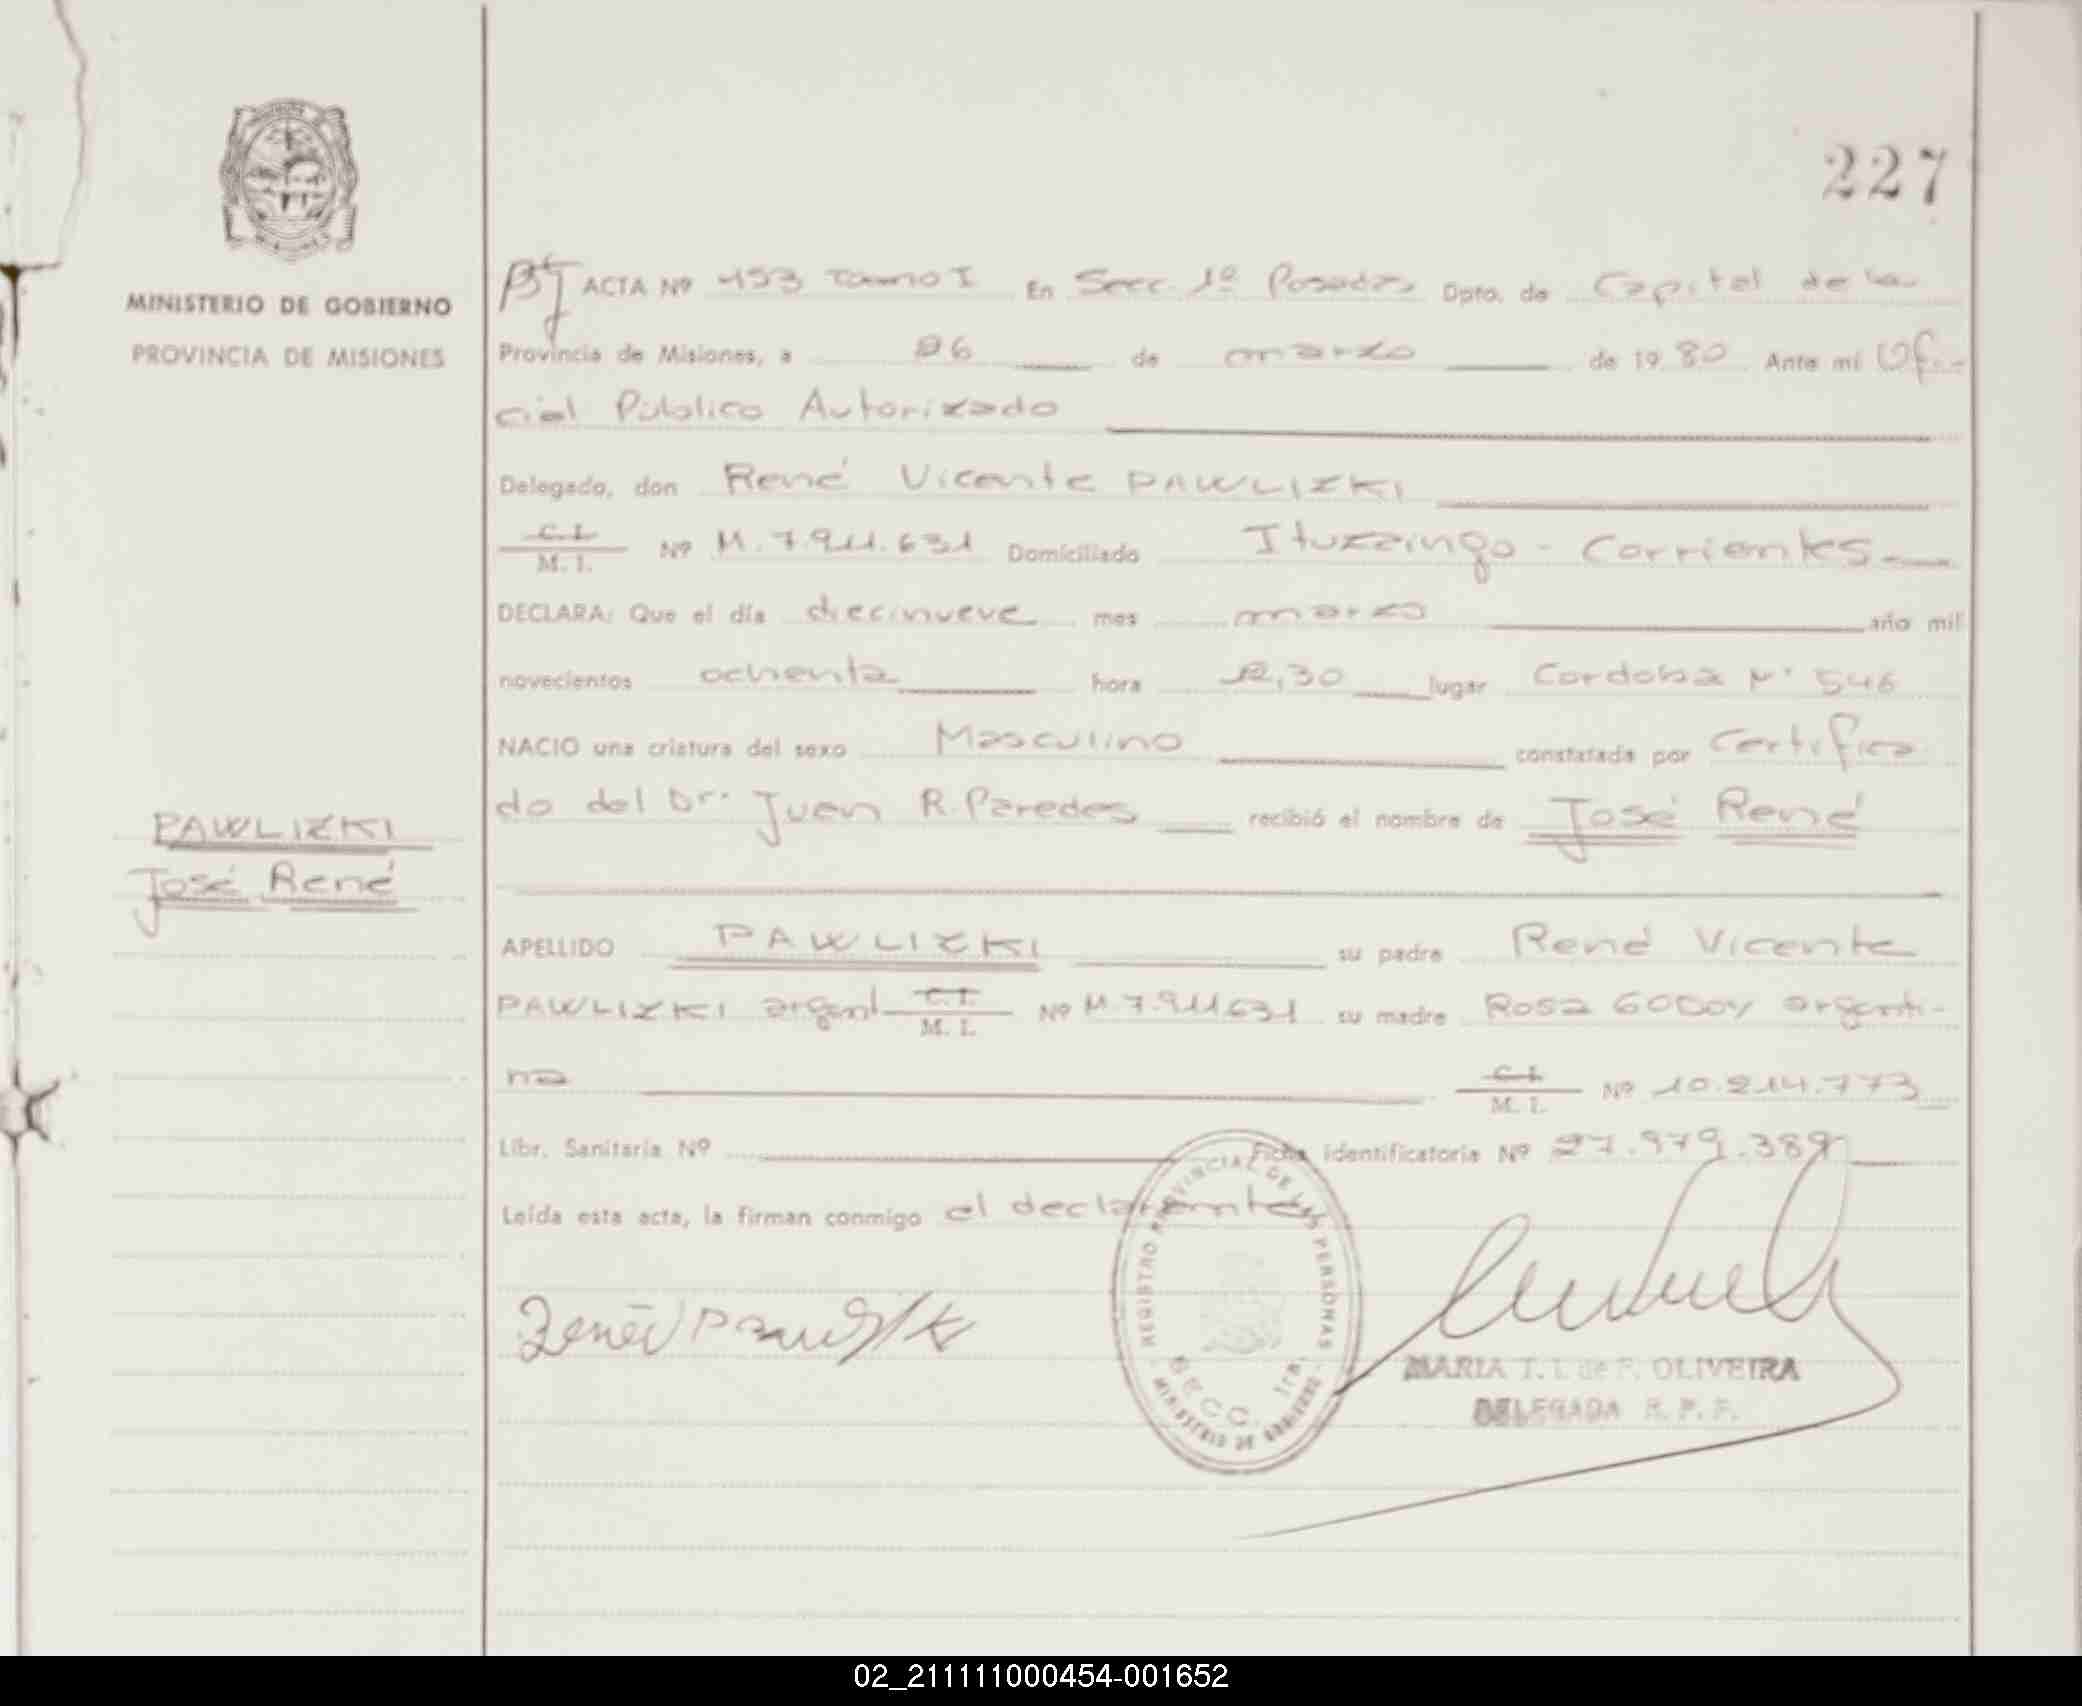 227
MINISTERIO DE GOBIERNO
PROVINCIA DE MISIONES
ACTA Nº 453 Tomo I En Secc. 1º Posadas Dpto. de Capital de la
Provincia de Misiones, a 26 de marzo de 1980 Ante mi Ofi-
cial Público Autorizado
Delegado, don René Vicente PAWLIZKI
C.I. M. I. Nº M. 7.911.631 Domiciliado Ituzaingo - Corrientes
DECLARA: Que el día diecinueve mes marzo año mil
novecientos ochenta hora 12,30 lugar Cordoba Nº 546
NACIO una criatura del sexo Masculino constatada por Certifica
do del Dr. Juan R. Paredes recibió el nombre de José René
PAWLIZKI
José René
APELLIDO PAWLIZKI su padre René Vicente
PAWLIZKI argent C.I. M. I. Nº M. 7.911.631 su madre Rosa GODOY argenti-
na C.I. M. I. Nº 10.214.773
Libr. Sanitaria Nº Ficha identificatoria Nº 27.979.389
Leída esta acta, la firman conmigo el declarante
REGISTRO PROVINCIAL DE LAS PERSONAS
SECC. 1ra.
MINISTERIO DE GOBIERNO
MARIA T. I. de F. OLIVEIRA
DELEGADA R. P. P.
02_211111000454-001652